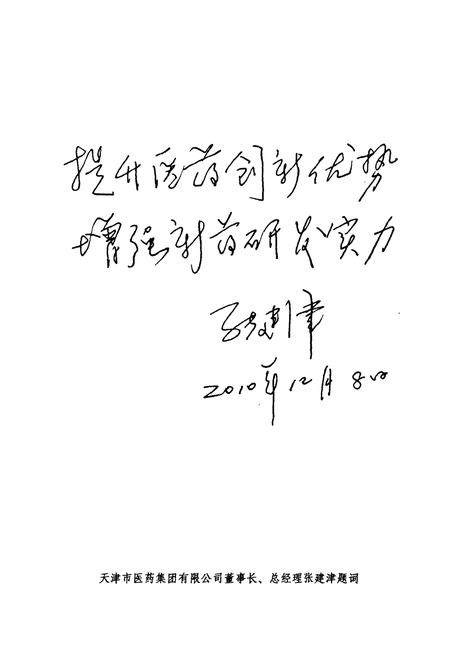 提升医药创新优势
增强新药研发实力
张建津
2010年12月8日
天津市医药集团有限公司董事长、总经理张建津题词